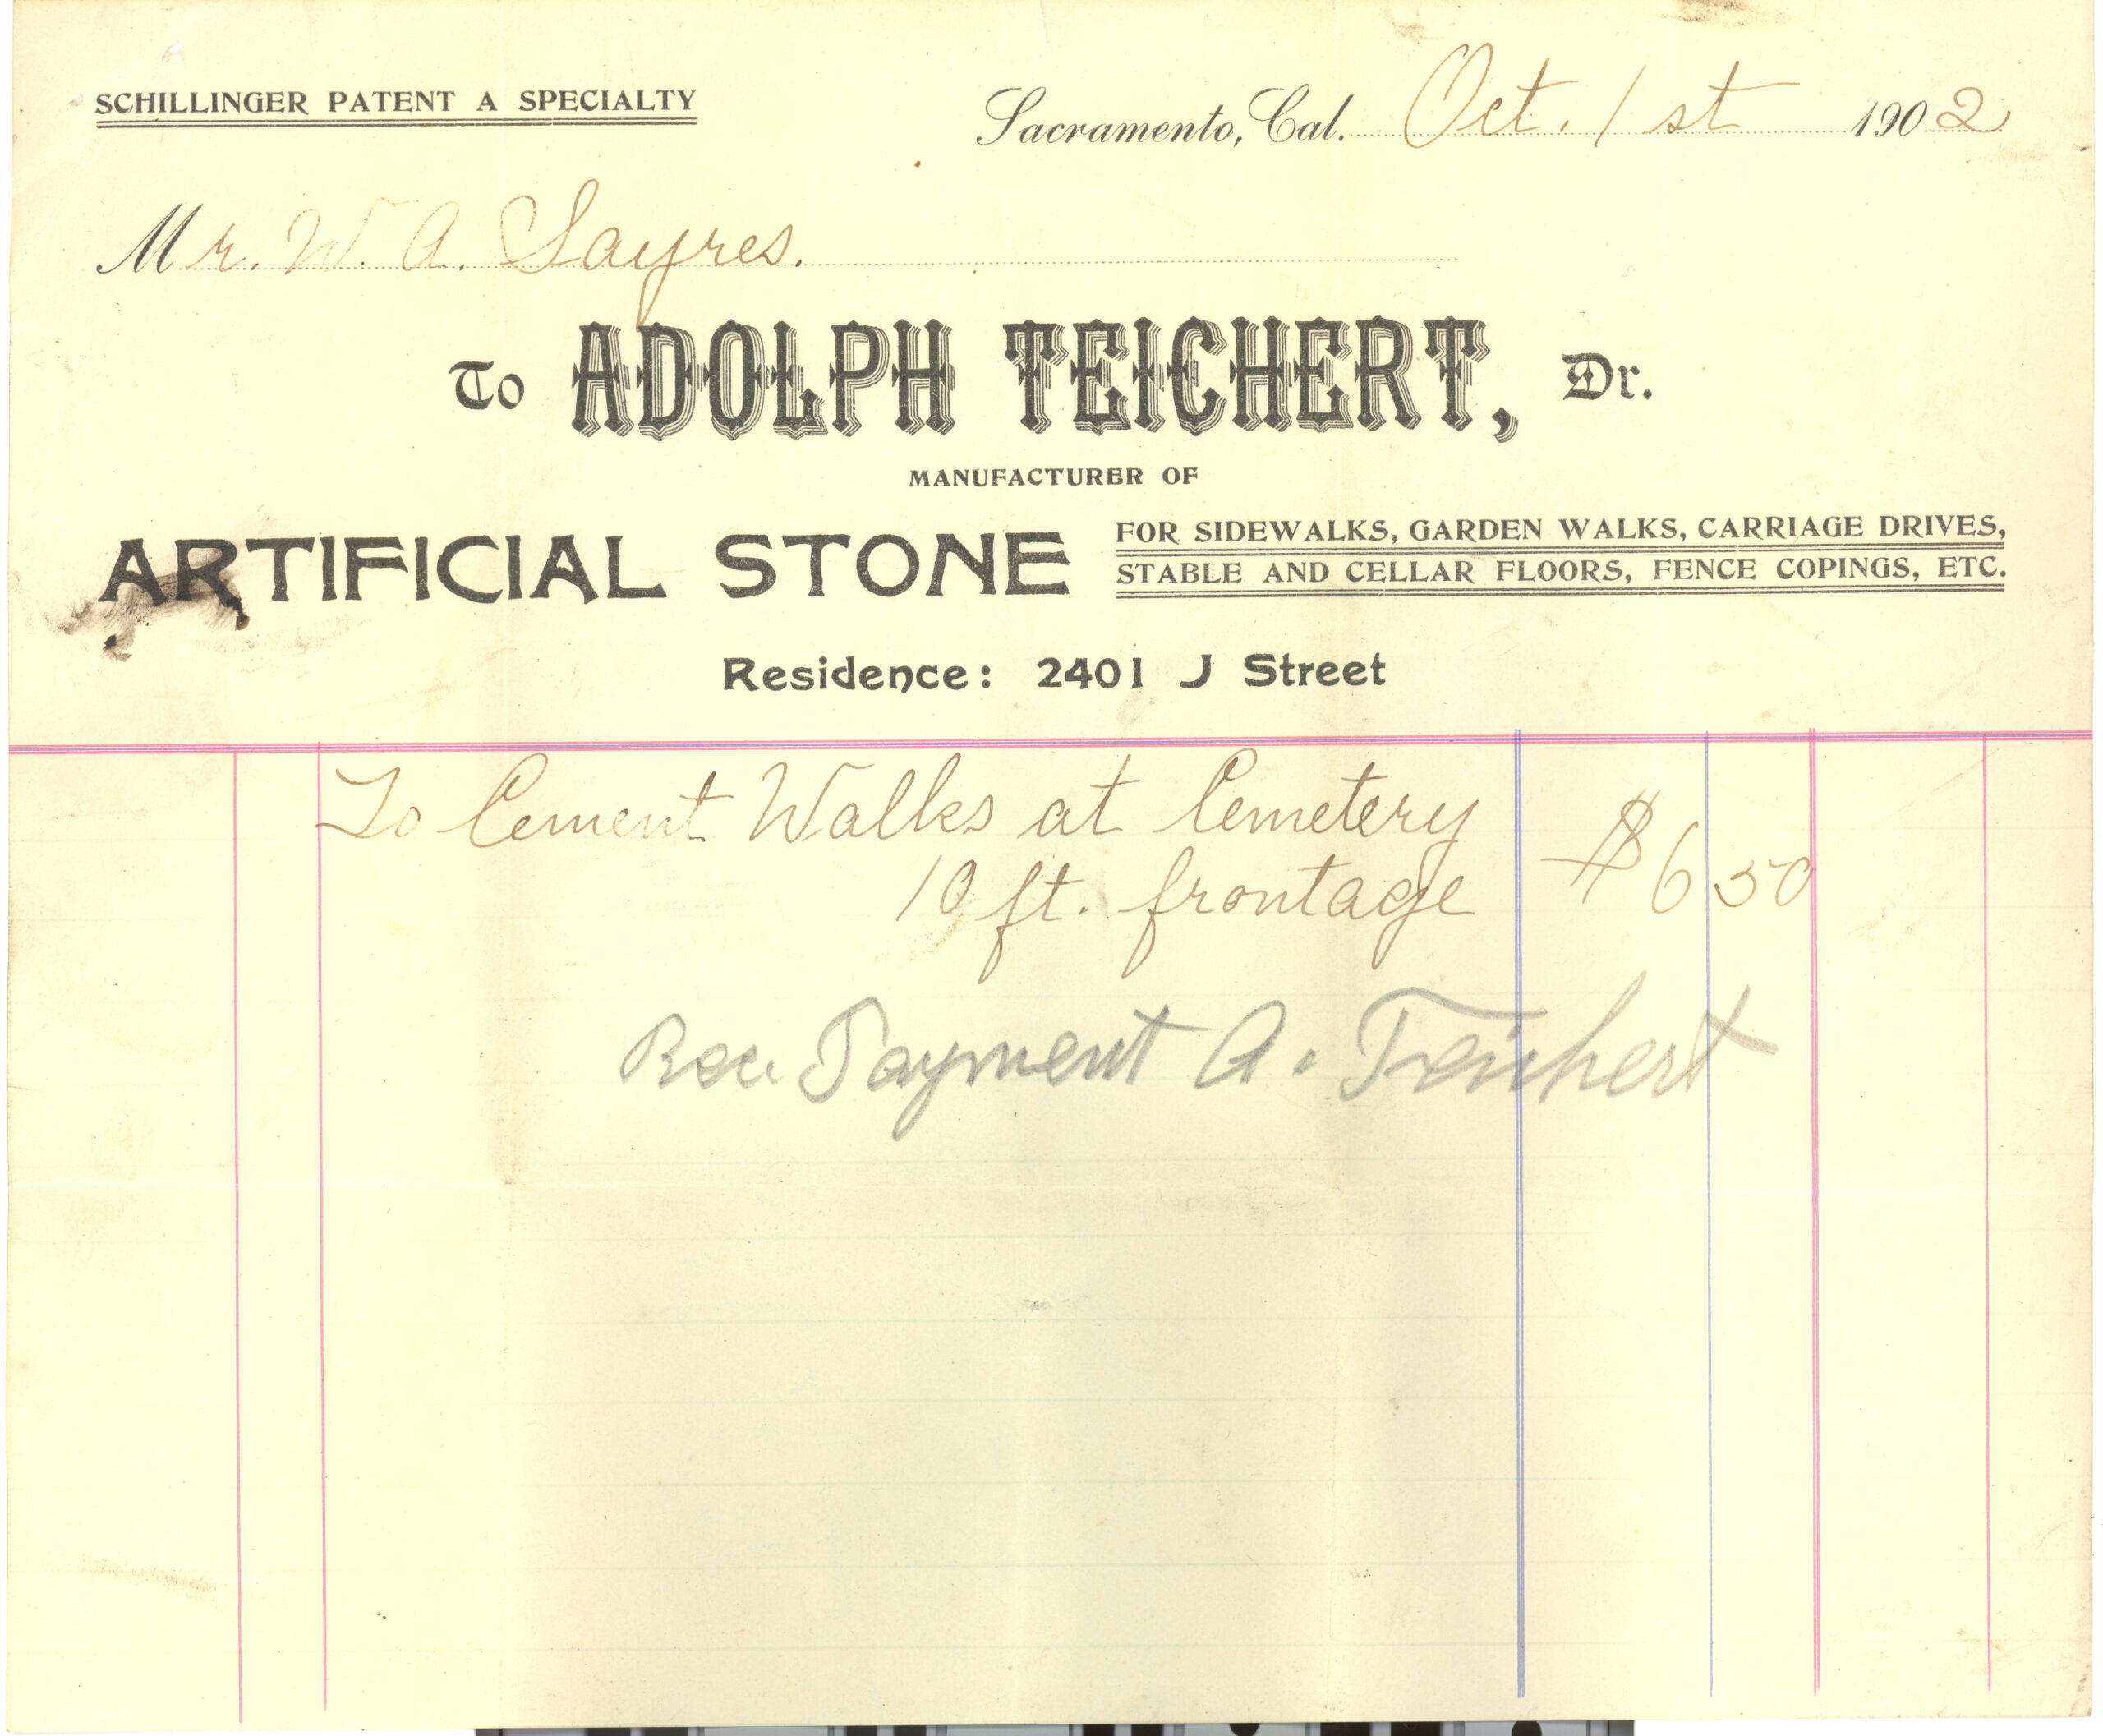 SCHILLINGER PATENT A SPECIALTY
Sacramento, Cal. Oct. 1st 1902
Mr. W. A. Sayres.
To ADOLPH TEICHERT, Dr.
MANUFACTURER OF
ARTIFICIAL STONE
FOR SIDEWALKS, GARDEN WALKS, CARRIAGE DRIVES,
STABLE AND CELLAR FLOORS, FENCE COPINGS, ETC.
Residence: 2401 J Street
To Cement Walks at Cemetery
10 ft. frontage $6 50
Rec. Payment A. Teichert